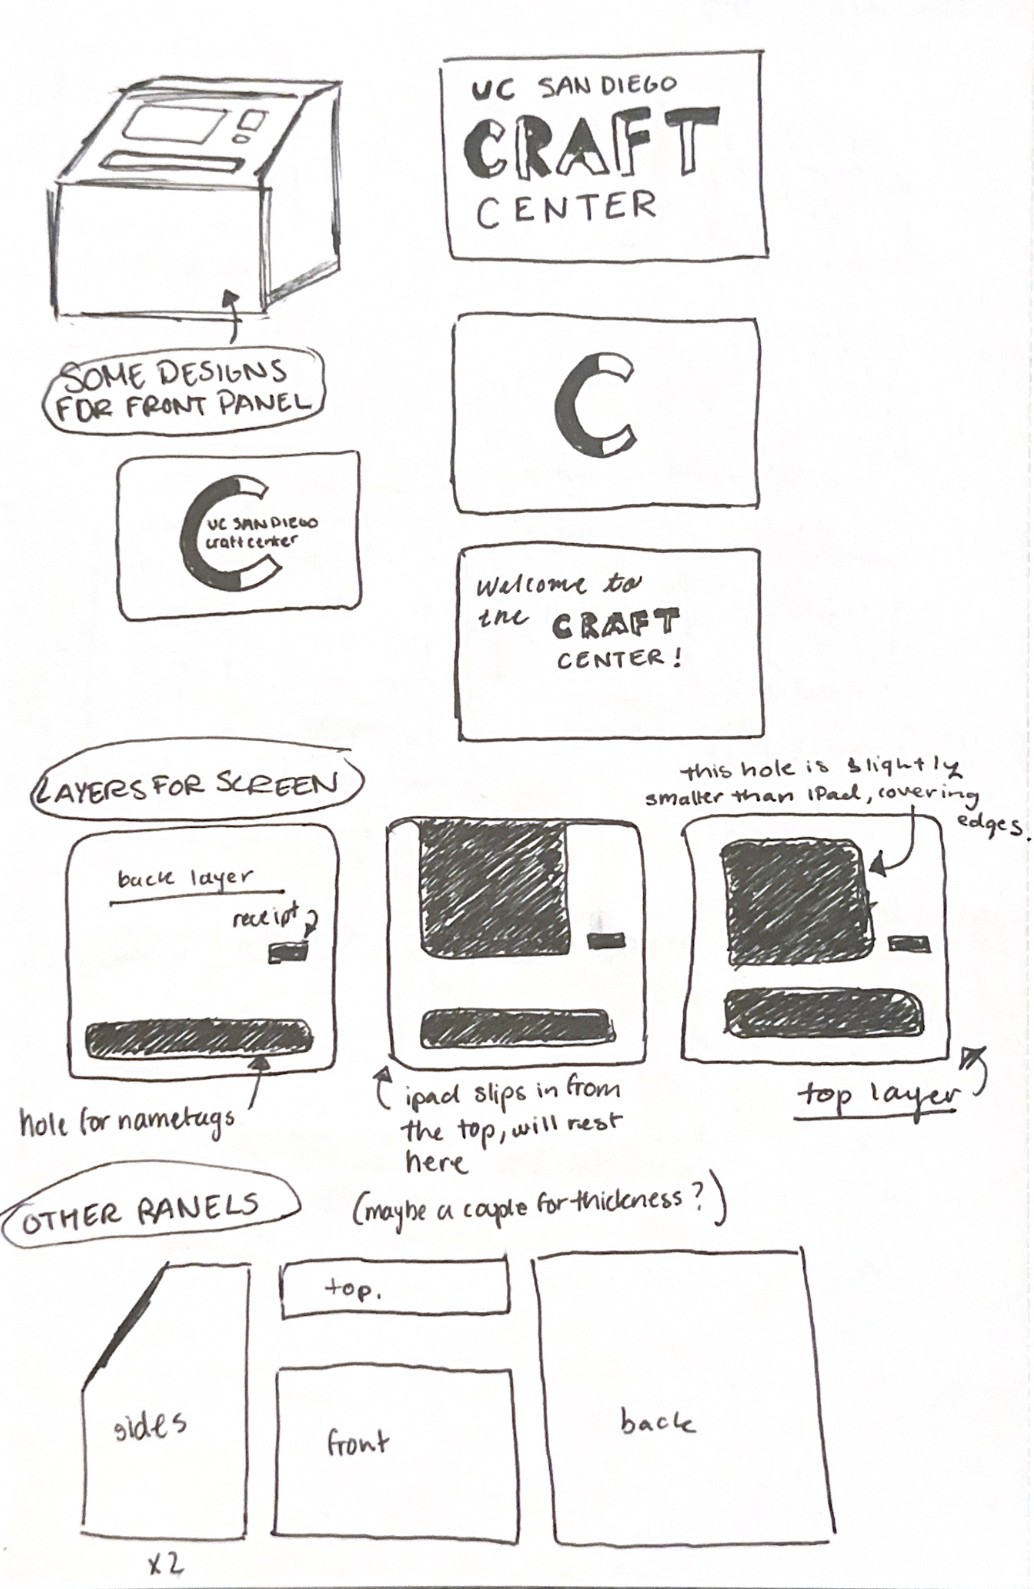 UC SAN DIEGO
CRAFT
CENTER
SOME DESIGNS
FOR FRONT PANEL
C
C
UC SAN DIEGO
craft center
Welcome to
the CRAFT
CENTER!
LAYERS FOR SCREEN
this hole is slightly
smaller than iPad, covering
edges.
back layer
receipt
hole for nametags
ipad slips in from
the top, will rest
here
top layer
(maybe a couple for thickness?)
OTHER PANELS
top.
sides
front
back
x2